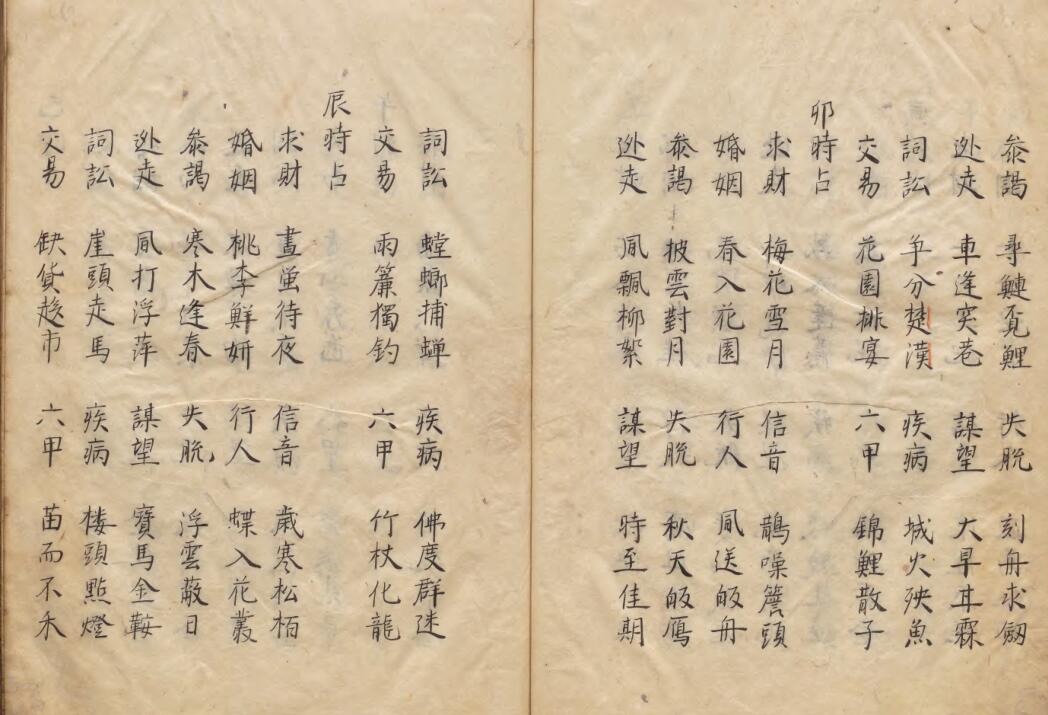 叅謁 尋鰱覔鯉 失脱 刻舟求劔
逃走 車逢窄巷 謀望 大旱甘霖
詞訟 争分楚漢 疾病 城火殃魚
交易 花園排宴 六甲 錦鯉散子
卯時占
求財 梅花雪月 信音 鵲噪簷頭
婚姻 春入花園 行人 凮送皈舟
叅謁 披雲對月 失脱 秋天皈鴈
逃走 凮飄柳絮 謀望 時至佳期
詞訟 螳螂捕蝉 疾病 佛度群迷
交易 雨簾獨釣 六甲 竹杖化龍
辰時占
求財 晝螢待夜 信音 歲寒松栢
婚姻 桃李鮮妍 行人 蝶入花叢
叅謁 寒木逢春 失脱 浮雲蔽日
逃走 凮打浮萍 謀望 寳馬金鞍
詞訟 崖頭走馬 疾病 楼頭點燈
交易 缺貨趍市 六甲 苗而不禾